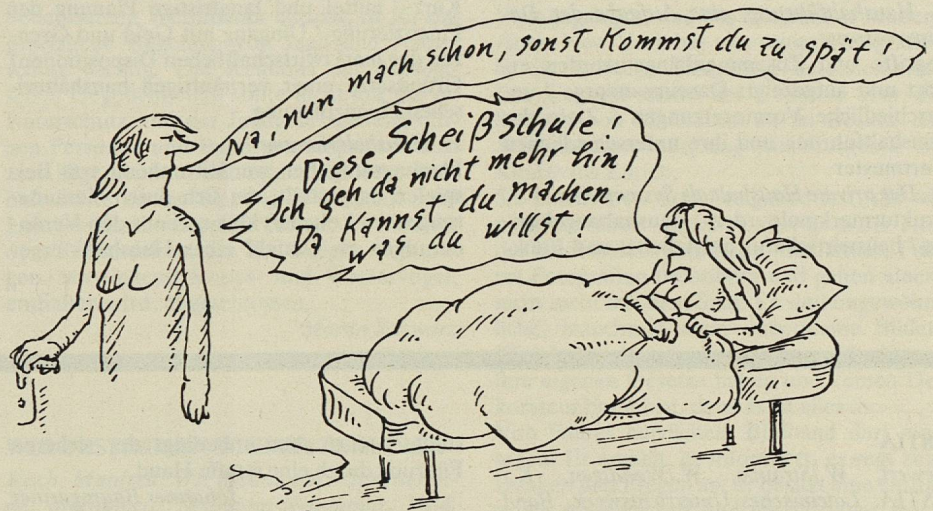 Na, nun mach schon, sonst kommst du zu spät!
Diese Scheißschule!
Ich geh' da nicht mehr hin!
Da kannst du machen
was du willst!